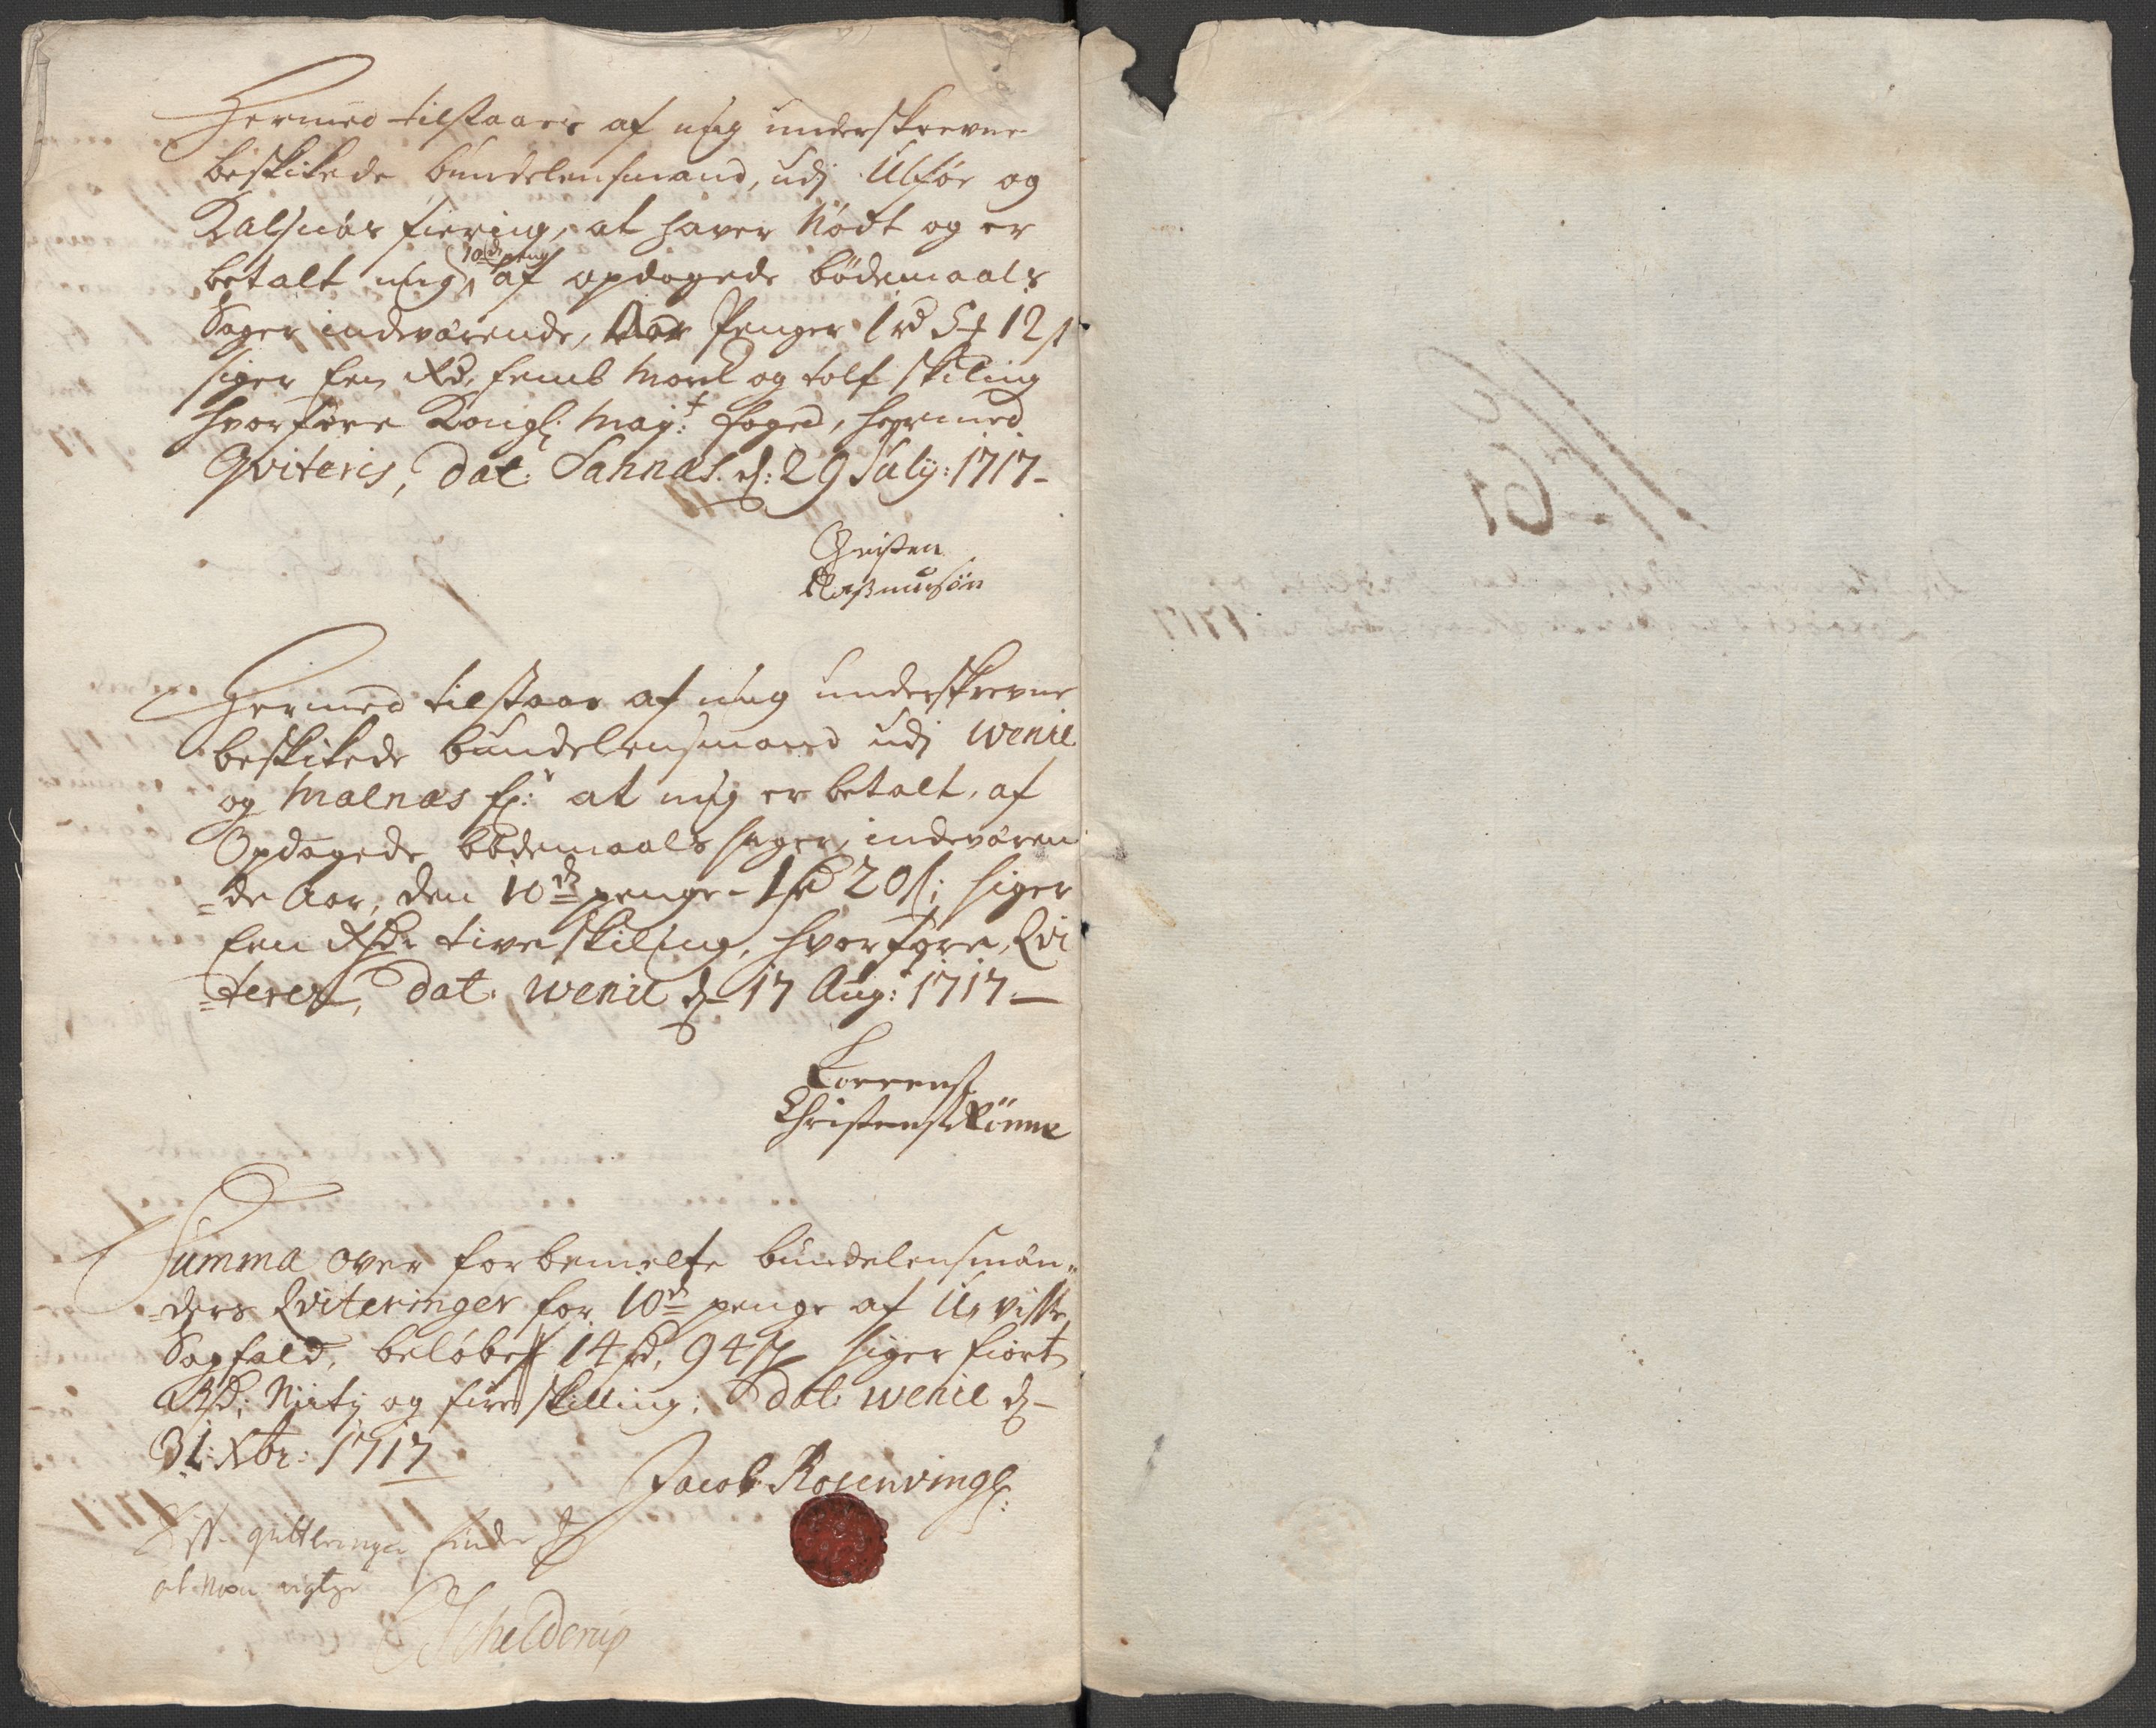 Hermed tilstaaes af mig underskrevne
beskikede bundelensmand, udj Ulfør og
Kalsnæs fiering, at haver Nødt og er
betalt mig, 10de peng af opdagede bödemaals
Sager indeværende, Aar Penger 1 rd 5 f 12 s
siger Een Rd, femb March og tolf skiling
hvorfore Kongl: May:t foged, hermed
Qviteris, dat: Sannæs. d: 29 July: 1717 -
Christen
Rasmusøn
Hermed tilstaaes af mig underskrevne
beskikede bundelensmand udj wenie
og Malnæs f: at mig er betalt, af
Opdagede bödemaals sager, indeværen
=de Aar, den 10de penge - 1 rd 20 s; siger
Een Rd: tive skiling, hvorfore, Qvi
=teres, dat. wenie d - 17 Aug: 1717 -
Lorrens
Christens Rönne
Summa over forbemelte bundelensmän„
=ders Qviteringer for 10de penge af Uvisse
Sagfald, beløbes 14 rd, 94 s siger fiorten
Rd; Nitj og fire skilling; dat. wenie d -
31: Xbr: 1717
Jacob Rosenvinge:
Disse quitteringer findes
at være rigtige
Schelderup
N: 61
1717